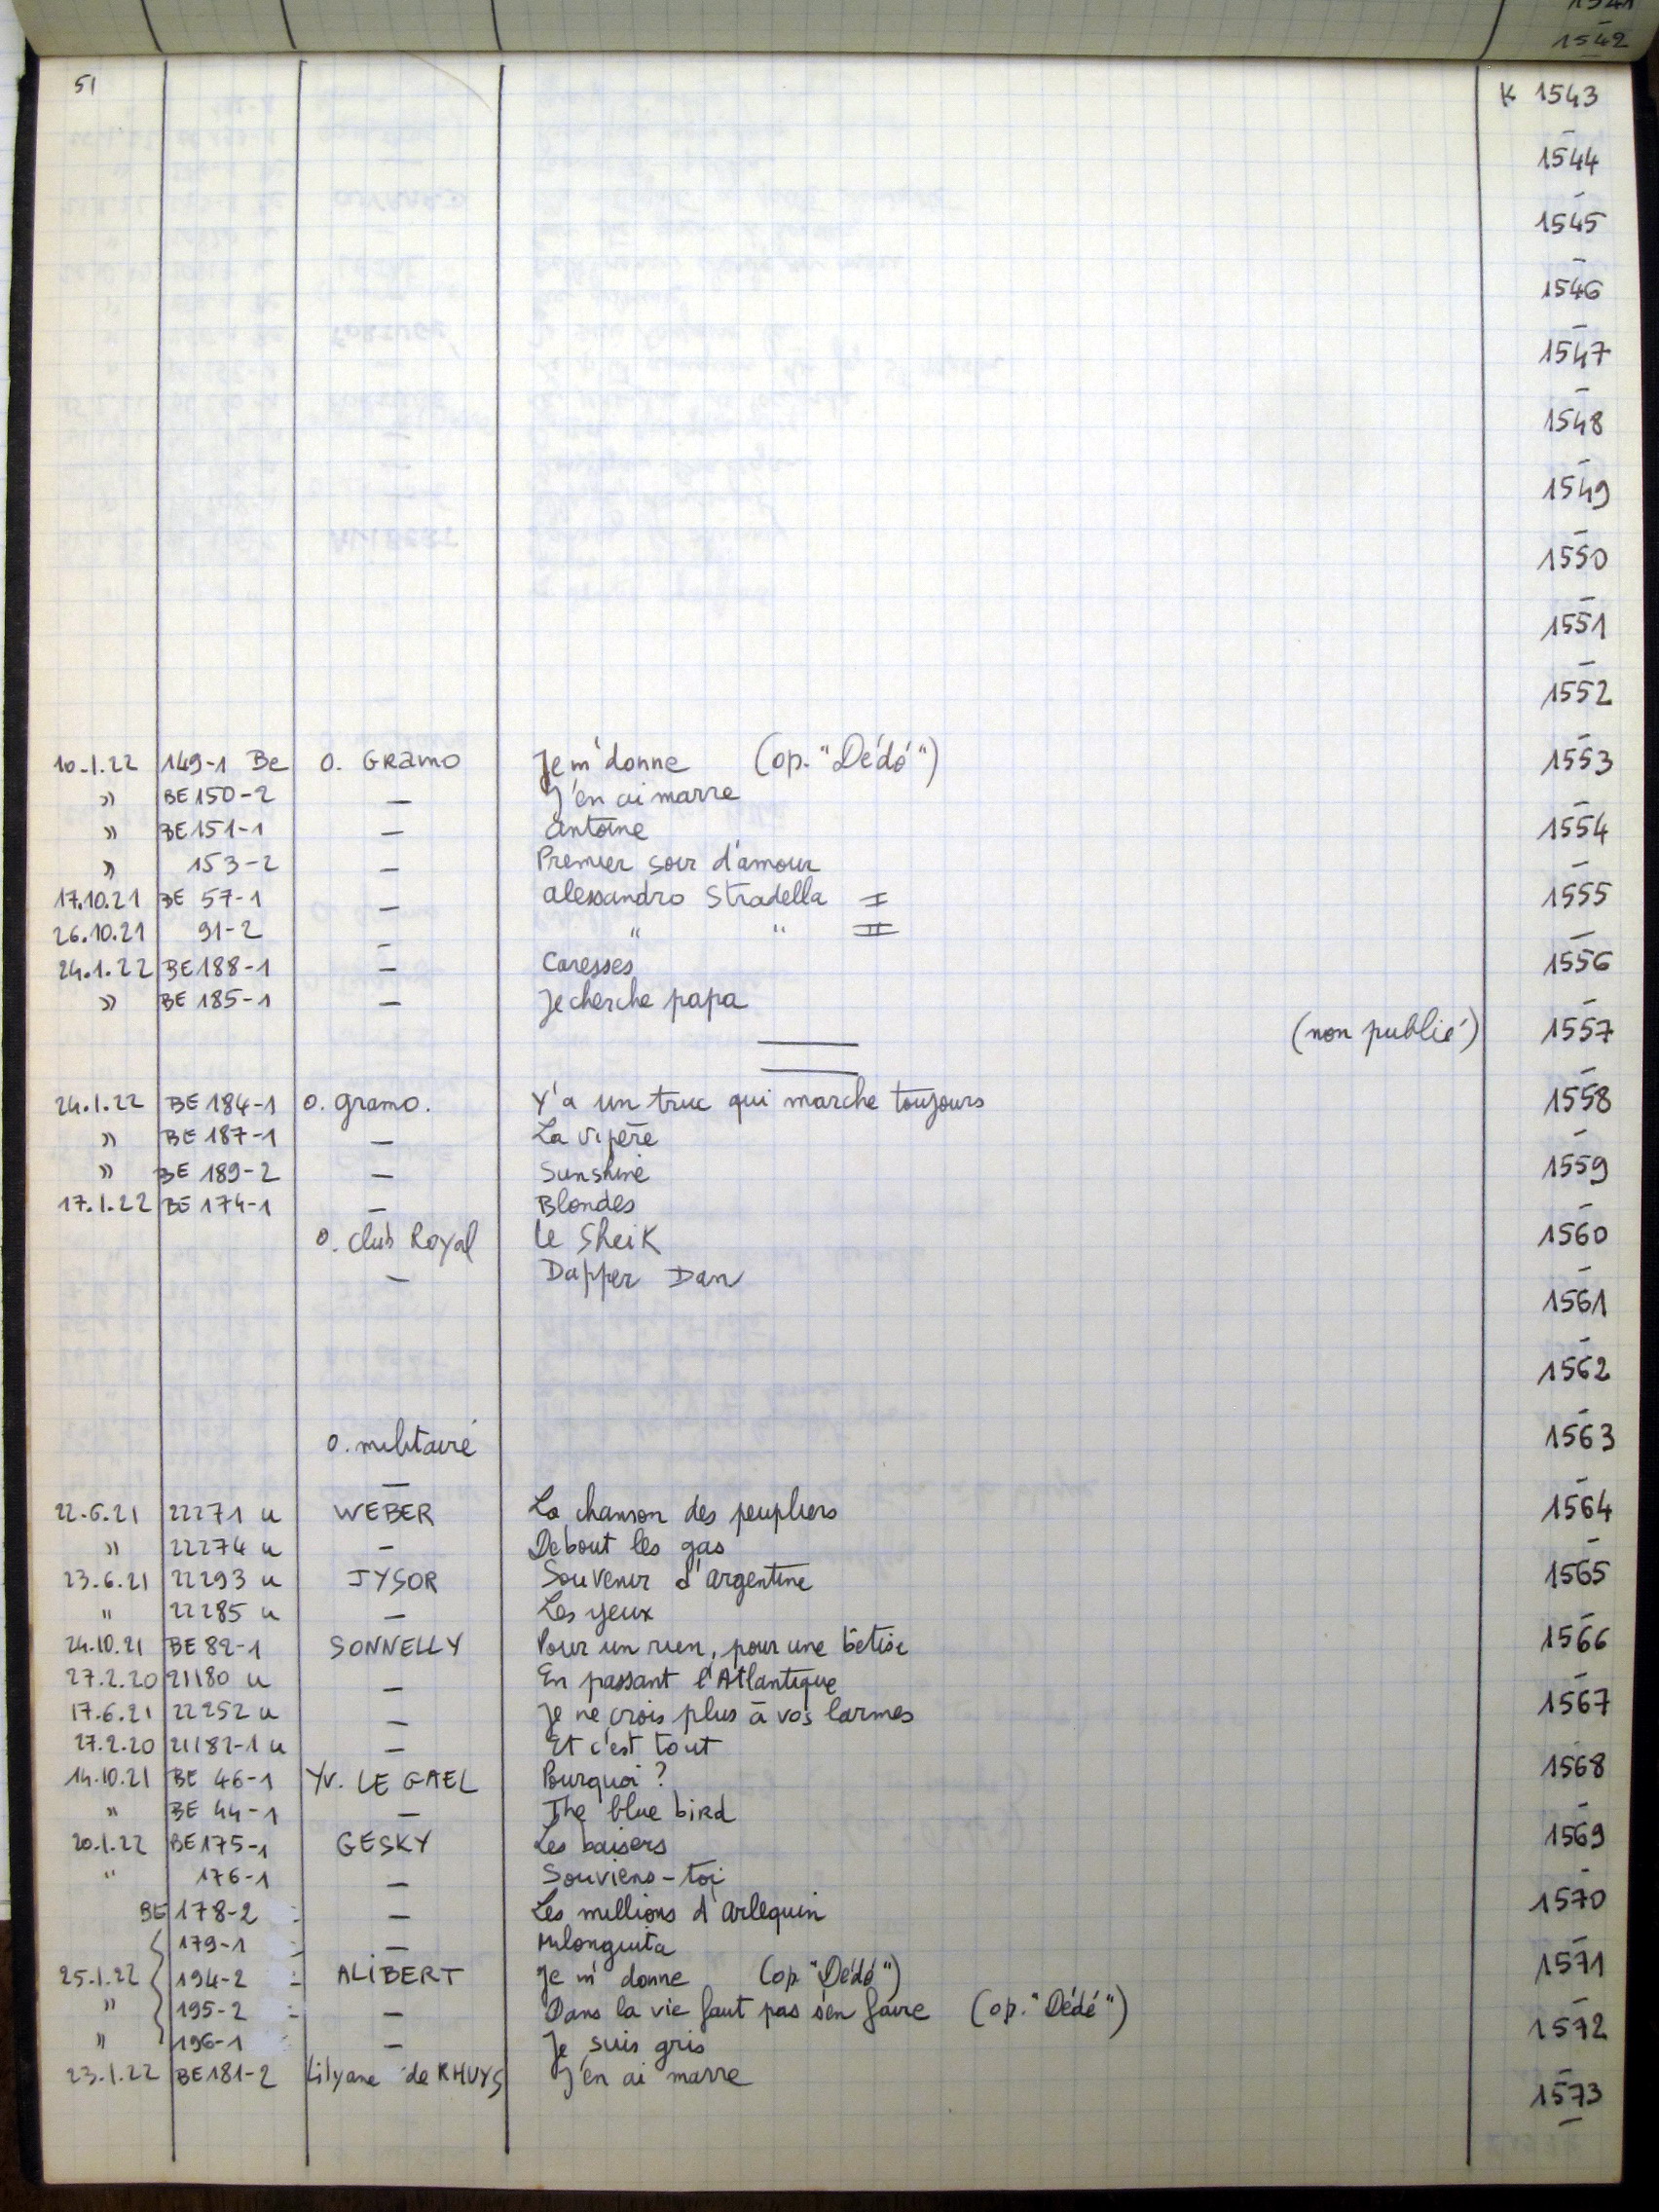 1541
1542
51 K 1543
1544
1545
1546
1547
1548
1549
1550
1551
1552
10.1.22 149-1 Be O. GRAMO Je m'donne (op. "Dédé") 1553
» BE 150-2 — J'en ai marre
» BE 151-1 — Antoine 1554
» 153-2 — Premier soir d'amour
17.10.21 BE 57-1 — Alessandro Stradella I 1555
26.10.21 91-2 — " " II
24.1.22 BE 188-1 — Caresses 1556
» BE 185-1 — Je cherche papa
(non publié) 1557
24.1.22 BE 184-1 O. gramo. Y'a un truc qui marche toujours 1558
» BE 187-1 — La vipère
» BE 189-2 — Sunshine 1559
17.1.22 BE 174-1 — Blondes
O. club Royal Le Sheik 1560
— Dapper Dan
1561
1562
O. militaire 1563
—
22.6.21 22271 u WEBER La chanson des peupliers 1564
» 22274 u — Debout les gas
23.6.21 22293 u JYSOR Souvenir d'Argentine 1565
" 22285 u — Les yeux
24.10.21 BE 82-1 SONNELLY Pour un rien, pour une bêtise 1566
27.2.20 21180 u — En passant l'Atlantique
17.6.21 22252 u — Je ne crois plus à vos larmes 1567
27.2.20 21182-1 u — Et c'est tout
14.10.21 BE 46-1 Yv. LE GAEL Pourquoi ? 1568
" BE 44-1 — The blue bird
20.1.22 BE 175-1 GESKY Les baisers 1569
" 176-1 — Souviens-toi
BE 178-2 — Les millions d'Arlequin 1570
179-1 — Milonguita
25.1.22 194-2 ALIBERT Je m'donne (op "Dédé") 1571
» 195-2 — Dans la vie faut pas s'en faire (op. "Dédé")
» 196-1 — Je suis gris 1572
23.1.22 BE 181-2 Lilyane de RHUYS J'en ai marre
1573